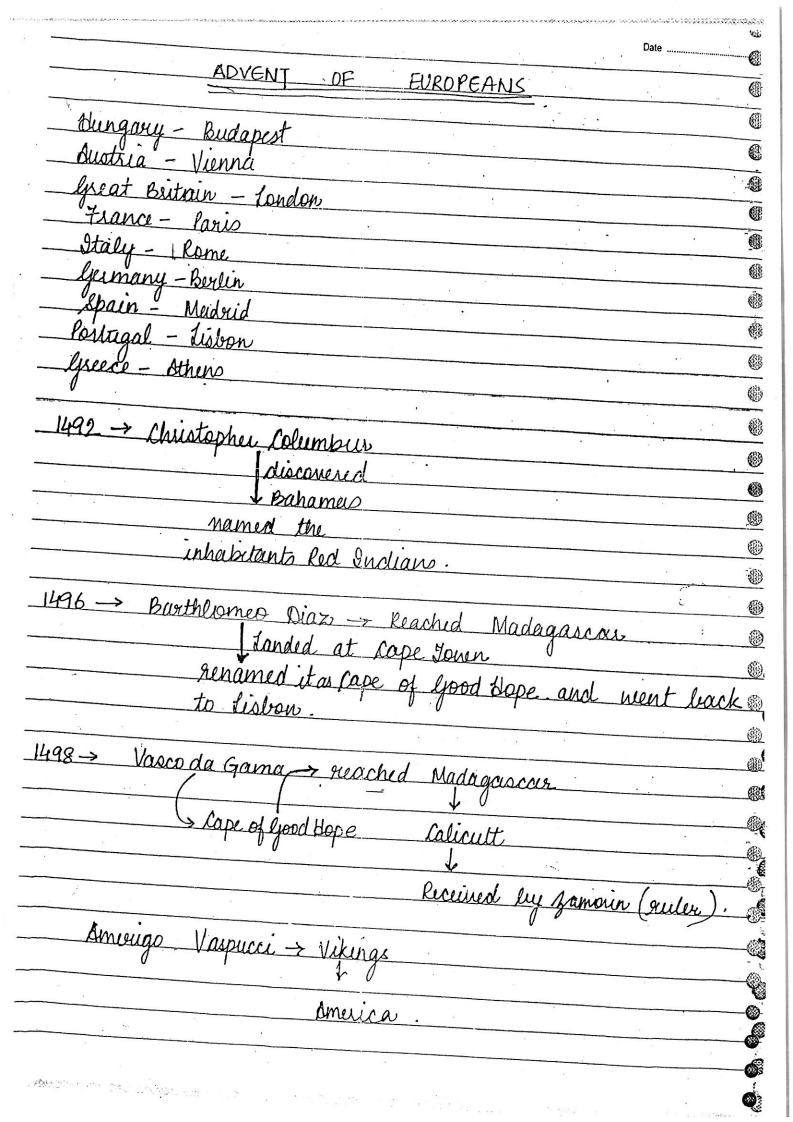 Date
ADVENT OF EUROPEANS
Hungary - Budapest
Austria - Vienna
Great Britain - London
France - Paris
Italy - Rome
Germany - Berlin
Spain - Madrid
Portugal - Lisbon
Greece - Athens
1492 → Christopher Columbus
discovered
↓ Bahamas
named the
inhabitants Red Indians.
1496 → Barthlomeo Diaz → Reached Madagascar
↓ Landed at Cape Town
renamed it as Cape of Good Hope and went back
to Lisbon.
1498 → Vasco da Gama → reached Madagascar
↓
→ Cape of Good Hope Calicutt
↓
Received by Zamorin (ruler).
Amerigo Vaspucci → Vikings
↓
America.